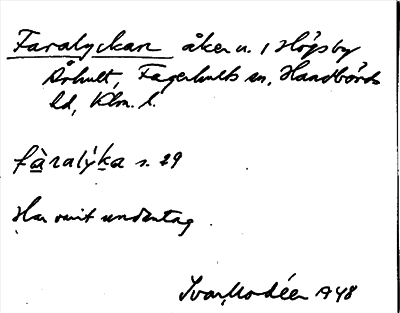 Faralyckan åker u. 1 Högsby
Århult, Fagerhults sn, Handbörds
hd, Klm. l.
fàralýka s. 29
Har varit undantag.
Ivar Modéer 1948